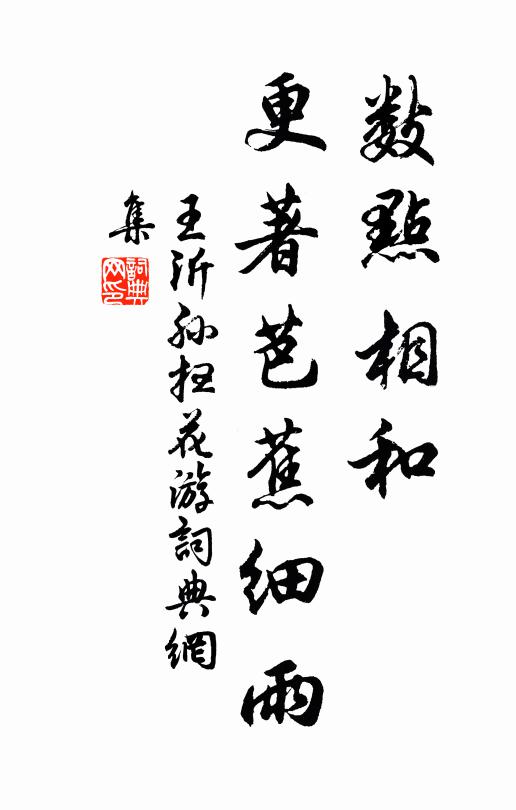 數點相和
更著芭蕉細雨
王沂孫扫花游詞典網
集
詞典网印